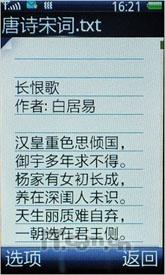 16:21
唐诗宋词.txt
长恨歌
作者: 白居易
汉皇重色思倾国，
御宇多年求不得。
杨家有女初长成，
养在深闺人未识。
天生丽质难自弃，
一朝选在君王侧。
选项 返回